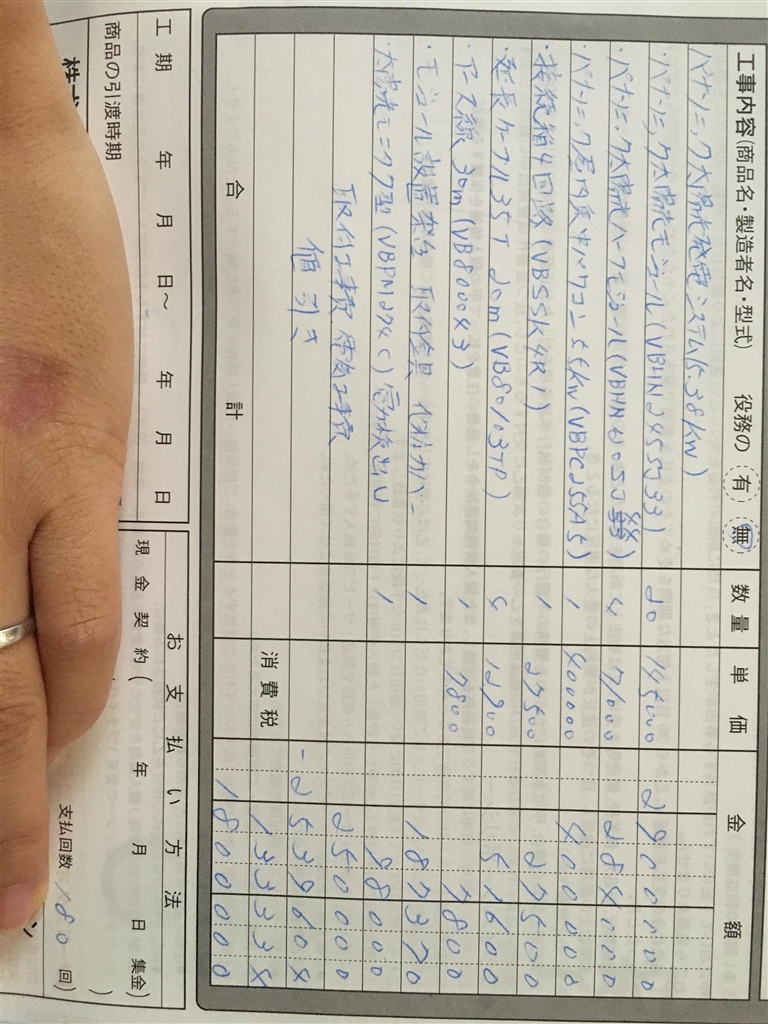 工事内容(商品名・製造者名・型式) 役務の 有 無 数量 単価 金額
パナソニック太陽光発電システム(5.38kW)
・パナソニック太陽光モジュール(VBHN245SJ33) 20 145000 2900000
・パナソニック太陽光ハーフモジュール 4 71000 284000
・パナソニック屋内集中パワコン5.5kW(VBPC255A5) 1 400000 400000
・接続箱4回路(VBSSK4R1) 1 27500 27500
・延長ケーブル35T 20m(VB80103TP) 4 12900 51600
・アース線30m(VB8000X3) 1 7800 7800
・モジュール設置架台 取付金具 化粧カバー 1 187370
・太陽光モニタ7型(VBPM274C) 電力検出U 1 98000
取付工事費 電気工事費 250000
値引き -2539604
消費税 133334
合計 1800000
工期 年 月 日〜 年 月 日
商品の引渡時期
お支払い方法
現金契約( 年 月 日 集金)
支払回数 180 回)